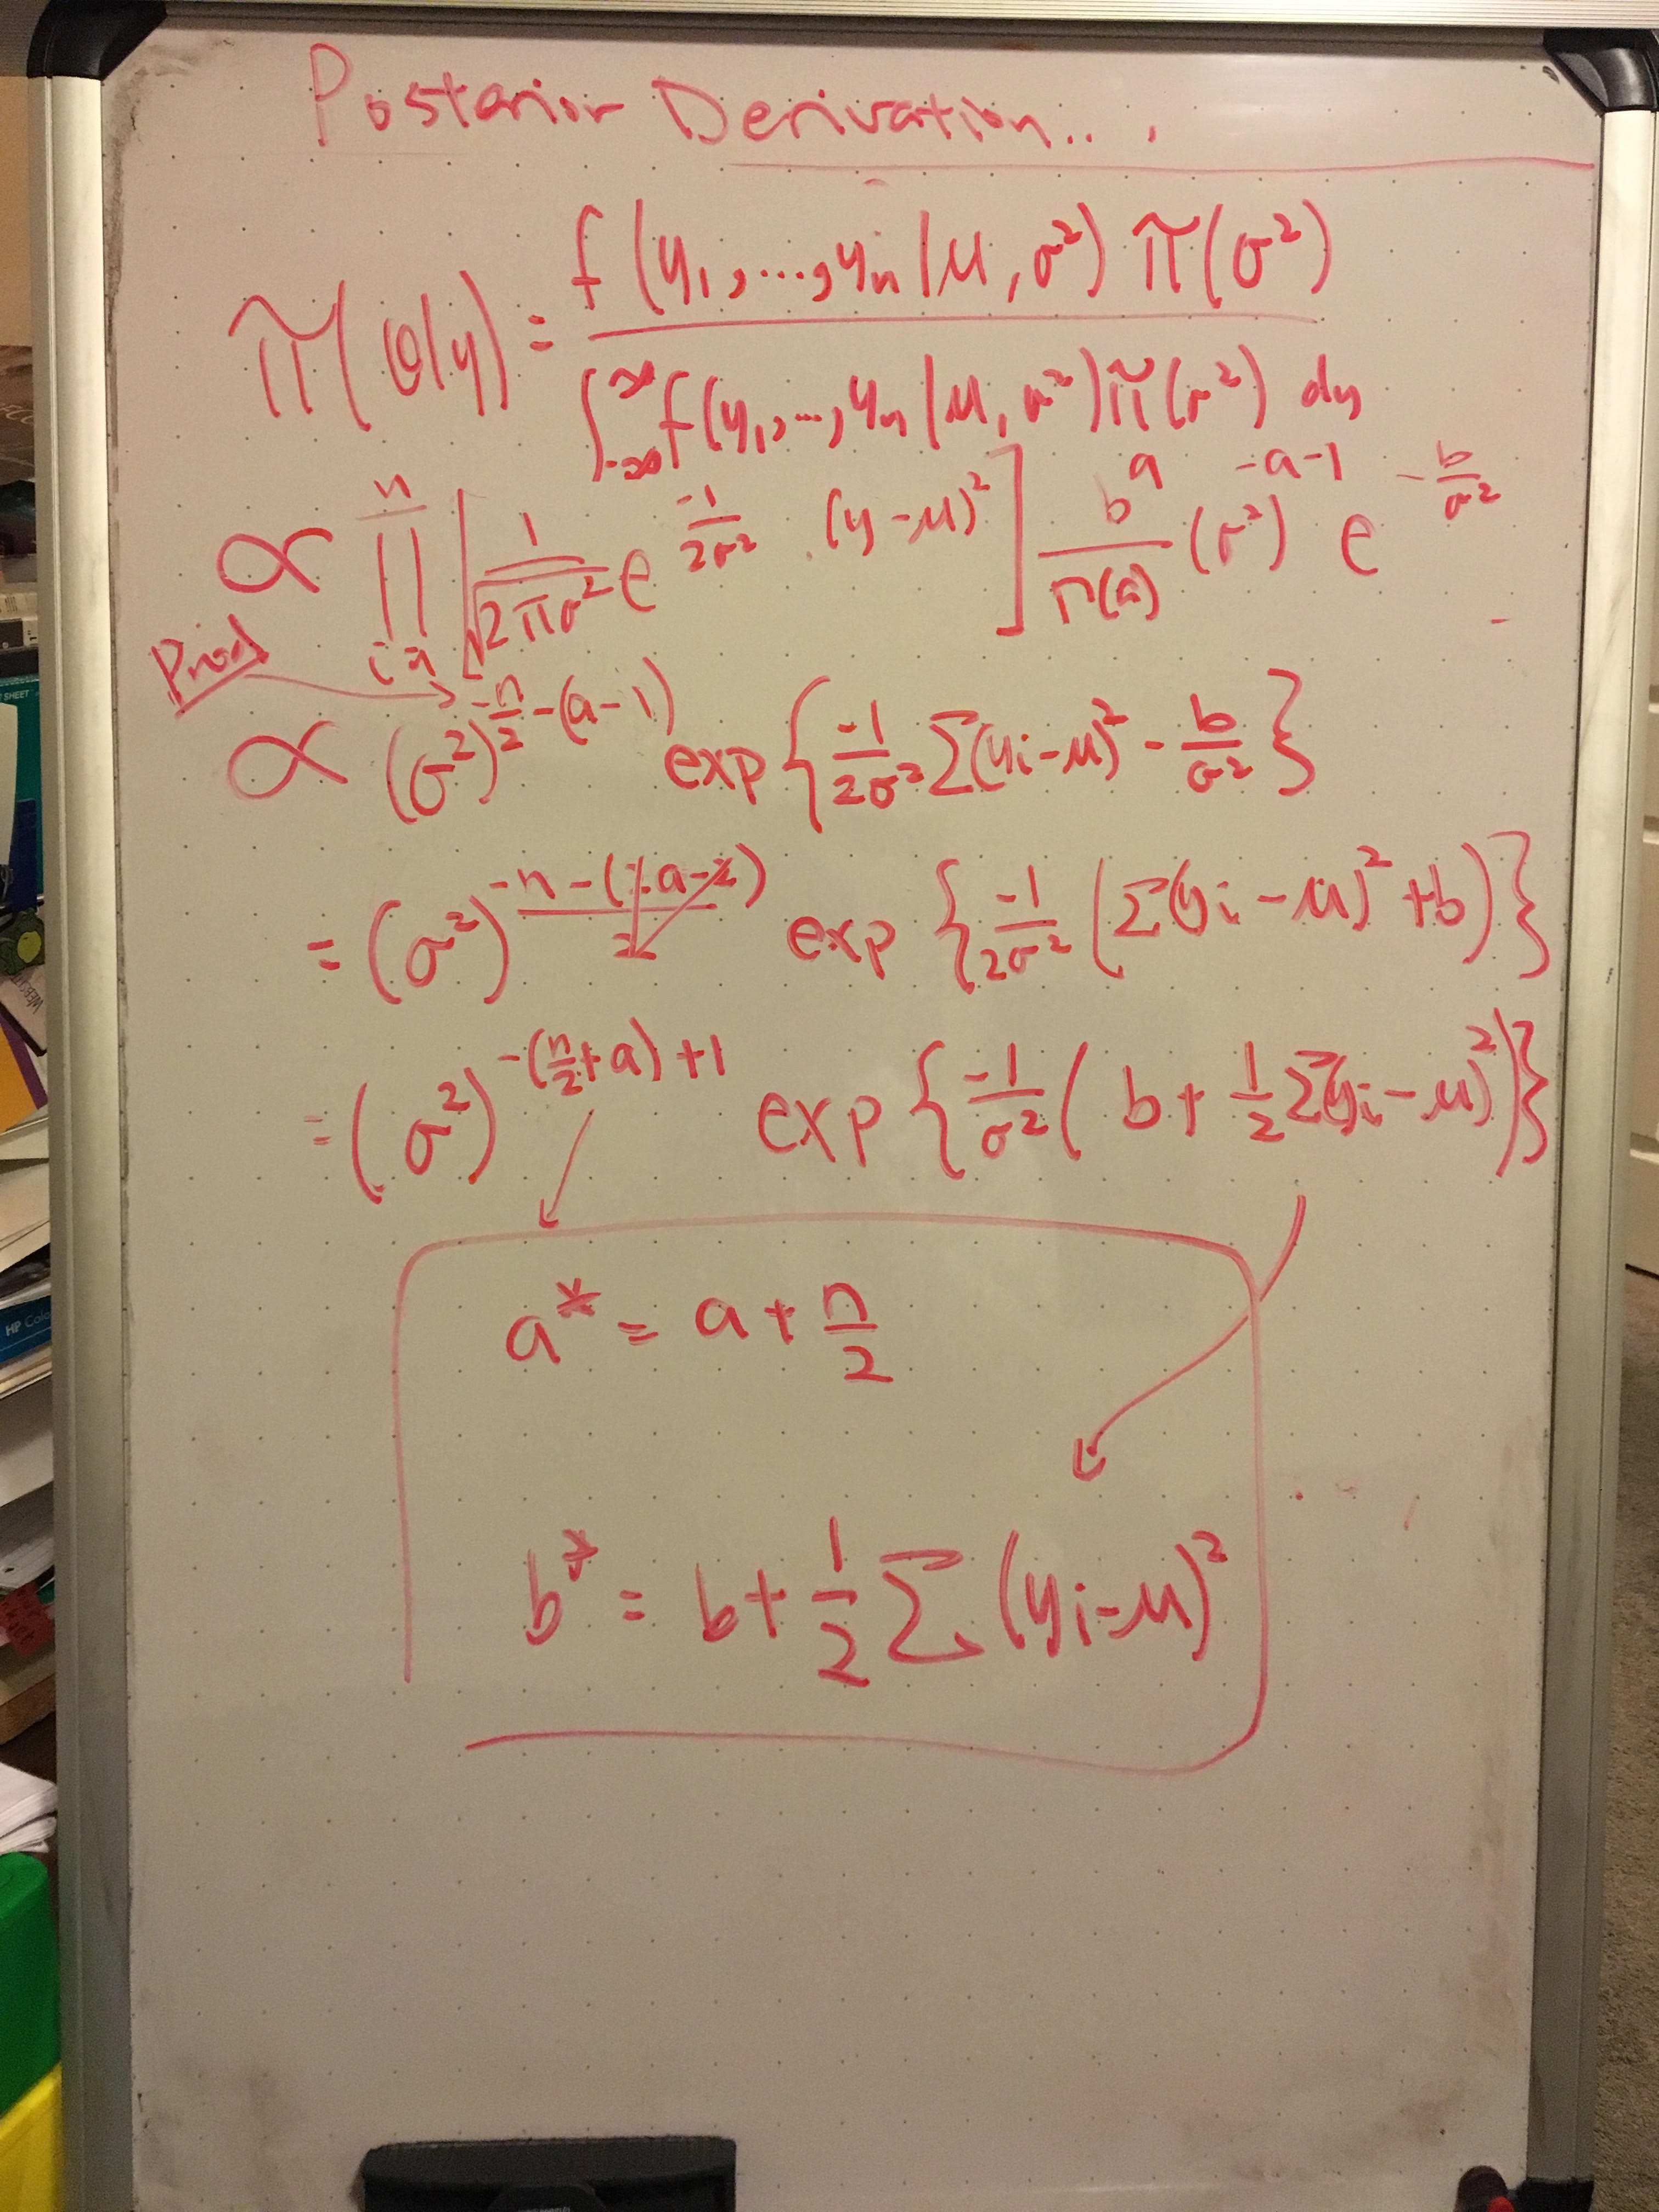 Posterior Derivation...
π(θ|y) = f(y₁,...,yₙ|μ,σ²) π(σ²) / ∫_{-∞}^{∞} f(y₁,...,yₙ|μ,σ²) π(σ²) dy
∝ ∏_{i=1}^{n} [1/√(2πσ²) e^{-1/(2σ²) · (y-μ)²}] b^a/Γ(a) (σ²)^{-a-1} e^{-b/σ²}
Prod
∝ (σ²)^{-n/2-(a-1)} exp{-1/(2σ²) Σ(yi-μ)² - b/σ²}
exp{-1/(2σ²) (Σ(yi-μ)²+b)}
= (σ²)^{-(n/2+a)+1} exp{-1/σ² (b+1/2 Σ(yi-μ)²)}
a* = a + n/2
b* = b + 1/2 Σ (yi-μ)²
SHEET
HP Colo